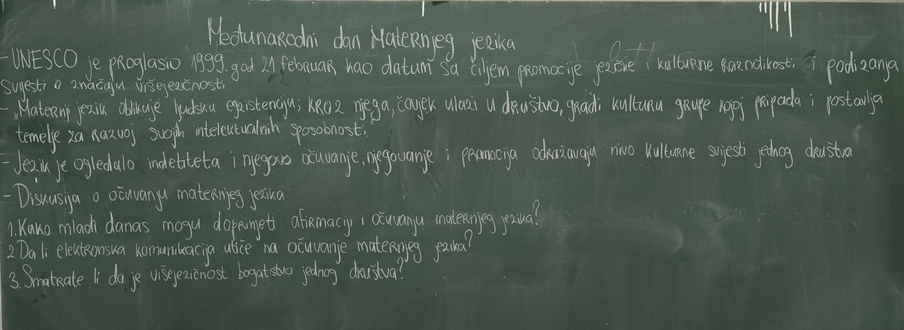 Međunarodni dan Maternjeg jezika
- UNESCO je proglasio 1999. god 21 februar kao datum sa ciljem promocije jezičke i kulturne raznolikosti i podizanja
svijesti o značaju višejezičnosti
- Maternji jezik oblikuje ljudsku egzistenciju; kroz njega, čovjek ulazi u društvo, gradi kulturu grupe kojoj pripada i postavlja
temelje za razvoj svojih intelektualnih sposobnosti.
- Jezik je ogledalo indetiteta i njegovo očuvanje, njegovanje i promocija odražavaju nivo kulturne svijesti jednog društva
- Diskusija o očuvanju maternjeg jezika
1. Kako mladi danas mogu doprinjeti afirmaciji i očuvanju maternjeg jezika?
2 Da li elektronska komunikacija utiče na očuvanje maternjeg jezika?
3. Smatrate li da je višejezičnost bogatstvo jednog društva?